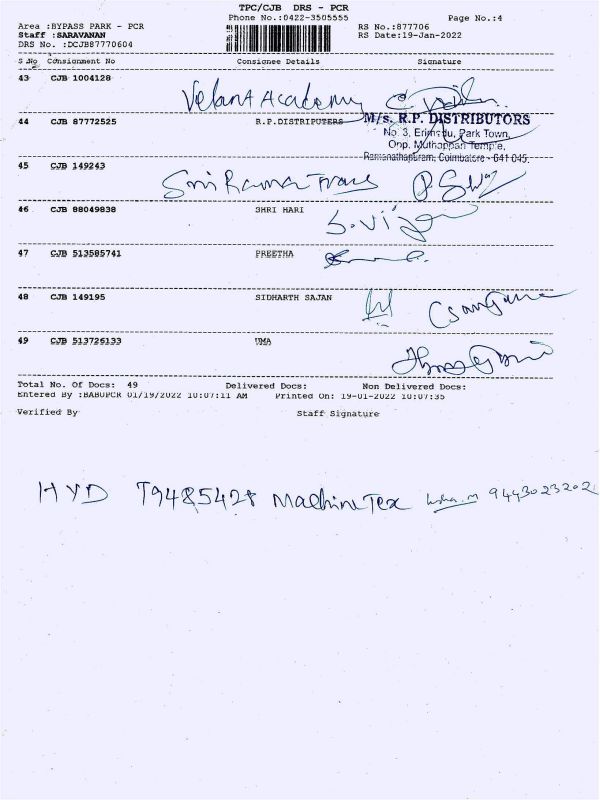 TPC/CJB DRS - PCR
Phone No.:0422-3505555 Page No.:4
Area :BYPASS PARK - PCR RS No.:877706
Staff :SARAVANAN RS Date:19-Jan-2022
DRS No. :DCJB87770604
S.No Consignment No Consignee Details Signature
43 CJB 1004128
Velant Academy
44 CJB 87772525 R.P.DISTRIPUTERS M/s. R.P. DISTRIBUTORS
No. 3, Park Town,
Opp. Muthappan Temple,
Ramanathapuram, Coimbatore - 641 045.
45 CJB 149243
Sri Rama Trans
46 CJB 88049838 SHRI HARI
47 CJB 513585741 PREETHA
48 CJB 149195 SIDHARTH SAJAN
49 CJB 513726133 UMA
Total No. Of Docs: 49 Delivered Docs: Non Delivered Docs:
Entered By :BABUPCR 01/19/2022 10:07:11 AM Printed On: 19-01-2022 10:07:35
Verified By Staff Signature
HYD T9485428 Machine Tex 9443023202